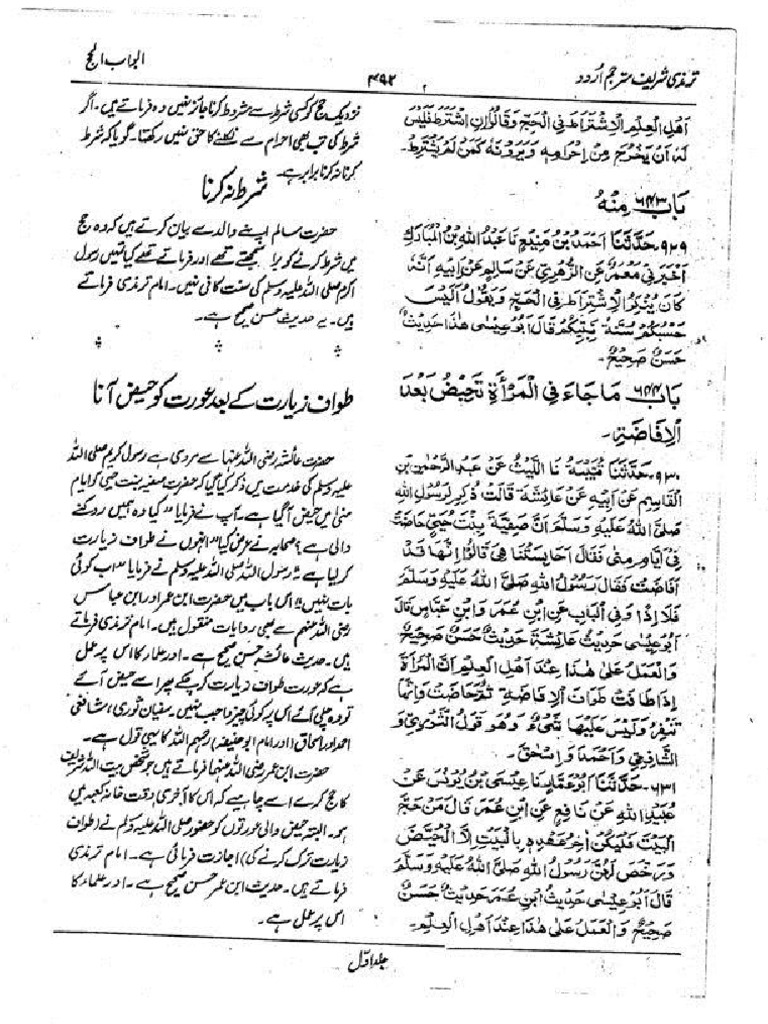 ترمذی شریف مترجم اُردو
۴۹۲
ابواب الحج
اَهْلِ الْعِلْمِ الْاِشْتِرَاطَ فِي الْحَجِّ وَقَالُوْا اِنِ اشْتَرَطَ فَلَيْسَ
لَهٗ اَنْ يَخْرُجَ مِنْ اِحْرَامِهٖ وَيَرَوْنَهٗ كَمَنْ لَمْ يَشْتَرِطْ۔
باب ۶۴۳ مِنْهُ
۹۲۹۔ حَدَّثَنَا اَحْمَدُ بْنُ مَنِيْعٍ نَا عَبْدُ اللهِ بْنُ الْمُبَارَكِ
اَخْبَرَنِيْ مَعْمَرٌ عَنِ الزُّهْرِيِّ عَنْ سَالِمٍ عَنْ اَبِيْهِ اَنَّهٗ
كَانَ يُنْكِرُ الْاِشْتِرَاطَ فِي الْحَجِّ وَيَقُوْلُ اَلَيْسَ
حَسْبُكُمْ سُنَّةَ نَبِيِّكُمْ قَالَ اَبُوْ عِيْسٰى هٰذَا حَدِيْثٌ
حَسَنٌ صَحِيْحٌ۔
باب ۶۴۴ مَا جَاءَ فِي الْمَرْأَةِ تَحِيْضُ بَعْدَ
الْاِفَاضَةِ۔
۹۳۰۔ حَدَّثَنَا قُتَيْبَةُ نَا اللَّيْثُ عَنْ عَبْدِ الرَّحْمٰنِ بْنِ
الْقَاسِمِ عَنْ اَبِيْهِ عَنْ عَائِشَةَ قَالَتْ ذُكِرَ لِرَسُوْلِ اللهِ
صَلَّى اللهُ عَلَيْهِ وَسَلَّمَ اَنَّ صَفِيَّةَ بِنْتَ حُيَيٍّ حَاضَتْ
فِيْ اَيَّامِ مِنٰى فَقَالَ اَحَابِسَتُنَا هِيَ قَالُوْا اِنَّهَا قَدْ
اَفَاضَتْ فَقَالَ رَسُوْلُ اللهِ صَلَّى اللهُ عَلَيْهِ وَسَلَّمَ
فَلَا اِذًا وَفِي الْبَابِ عَنِ ابْنِ عُمَرَ وَابْنِ عَبَّاسٍ قَالَ
اَبُوْ عِيْسٰى حَدِيْثُ عَائِشَةَ حَدِيْثٌ حَسَنٌ صَحِيْحٌ
وَالْعَمَلُ عَلٰى هٰذَا عِنْدَ اَهْلِ الْعِلْمِ اَنَّ الْمَرْأَةَ
اِذَا طَافَتْ طَوَافَ الْاِفَاضَةِ ثُمَّ حَاضَتْ فَاِنَّهَا
تَنْفِرُ وَلَيْسَ عَلَيْهَا شَيْءٌ وَهُوَ قَوْلُ الثَّوْرِيِّ وَ
الشَّافِعِيِّ وَاَحْمَدَ وَاِسْحٰقَ۔
۶۳۱۔ حَدَّثَنَا اَبُوْ عَمَّارٍ نَا عِيْسَى بْنُ يُوْنُسَ عَنْ
عُبَيْدِ اللهِ عَنْ نَافِعٍ عَنِ ابْنِ عُمَرَ قَالَ مَنْ حَجَّ
الْبَيْتَ فَلْيَكُنْ اٰخِرُ عَهْدِهٖ بِالْبَيْتِ اِلَّا الْحُيَّضَ
وَرَخَّصَ لَهُنَّ رَسُوْلُ اللهِ صَلَّى اللهُ عَلَيْهِ وَسَلَّمَ
قَالَ اَبُوْ عِيْسٰى حَدِيْثُ ابْنِ عُمَرَ حَدِيْثٌ حَسَنٌ
صَحِيْحٌ وَالْعَمَلُ عَلٰى هٰذَا عِنْدَ اَهْلِ الْعِلْمِ۔
نزدیک حج کو کسی شرط سے مشروط کرنا جائز نہیں وہ فرماتے ہیں۔ اگر
شرط کی تب بھی احرام سے نکلنے کا حق نہیں رکھتا۔ گویا کہ شرط
کرنا نہ کرنا برابر ہے۔
شرط نہ کرنا
حضرت سالم اپنے والد سے بیان کرتے ہیں کہ وہ حج
میں شرط کرنے کو برا سمجھتے تھے اور فرماتے تھے کیا تمہیں رسول
اکرم صلی اللہ علیہ وسلم کی سنت کافی نہیں۔ امام ترمذی فرماتے
ہیں۔ یہ حدیث حسن صحیح ہے۔
طواف زیارت کے بعد عورت کو حیض آنا
حضرت عائشہ رضی اللہ عنہا سے مروی ہے رسول کریم صلی اللہ
علیہ وسلم کی خدمت میں ذکر کیا گیا کہ حضرت صفیہ بنت حیی کو ایام
منیٰ میں حیض آگیا ہے۔ آپ نے فرمایا "کیا وہ ہمیں روکنے
والی ہے؟ صحابہ نے عرض کیا "انہوں نے طواف زیارت
کر لیا ہے" رسول اللہ صلی اللہ علیہ وسلم نے فرمایا "اب کوئی
بات نہیں" اس باب میں حضرت ابن عمر اور ابن عباس
رضی اللہ عنہم سے بھی روایات منقول ہیں۔ امام ترمذی فرماتے
ہیں۔ حدیث عائشہ حسن صحیح ہے۔ اور علماء کا اس پر عمل
ہے کہ عورت طواف زیارت کر چکے پھر اسے حیض آئے
تو وہ چلی آئے اس پر کوئی چیز واجب نہیں۔ سفیان ثوری، شافعی
احمد اور اسحاق (اور امام ابو حنیفہ) رحمہم اللہ کا یہی قول ہے۔
حضرت ابن عمر رضی اللہ عنہما فرماتے ہیں جو شخص بیت اللہ شریف
کا حج کرے اسے چاہیے کہ اس کا آخری وقت خانہ کعبہ میں
ہو۔ البتہ حیض والی عورتوں کو حضور صلی اللہ علیہ وسلم نے (طواف
زیارت ترک کرنے کی) اجازت فرمائی ہے۔ امام ترمذی
فرماتے ہیں۔ حدیث ابن عمر حسن صحیح ہے۔ اور علماء کا
اس پر عمل ہے۔
جلد اوّل